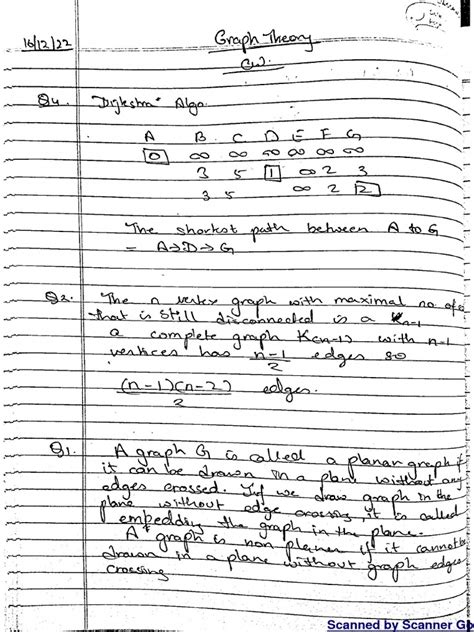 16/12/22
Graph Theory
CW.
Q4. Dijkstra Algo.
A B C D E F G
0 ∞ ∞ ∞ ∞ ∞ ∞
3 5 1 ∞ 2 3
3 5 ∞ 2 2
The shortest path between A to G
= A→D→G
Q2. The n vertex graph with maximal no. of
that is still disconnected is a Kn-1
a complete graph K(n-1) with n-1
vertices has n-1/2 edges so
(n-1)(n-2)/2 edges.
Q1. A graph G is called a planar graph if
it can be drawn in a plane without any
edges crossed. If we draw graph in the
plane without edge crossing, it is called
embedding the graph in the plane.
A graph is non planer if it cannot be
drawn in a plane without graph edges
crossing
Scanned by Scanner Go